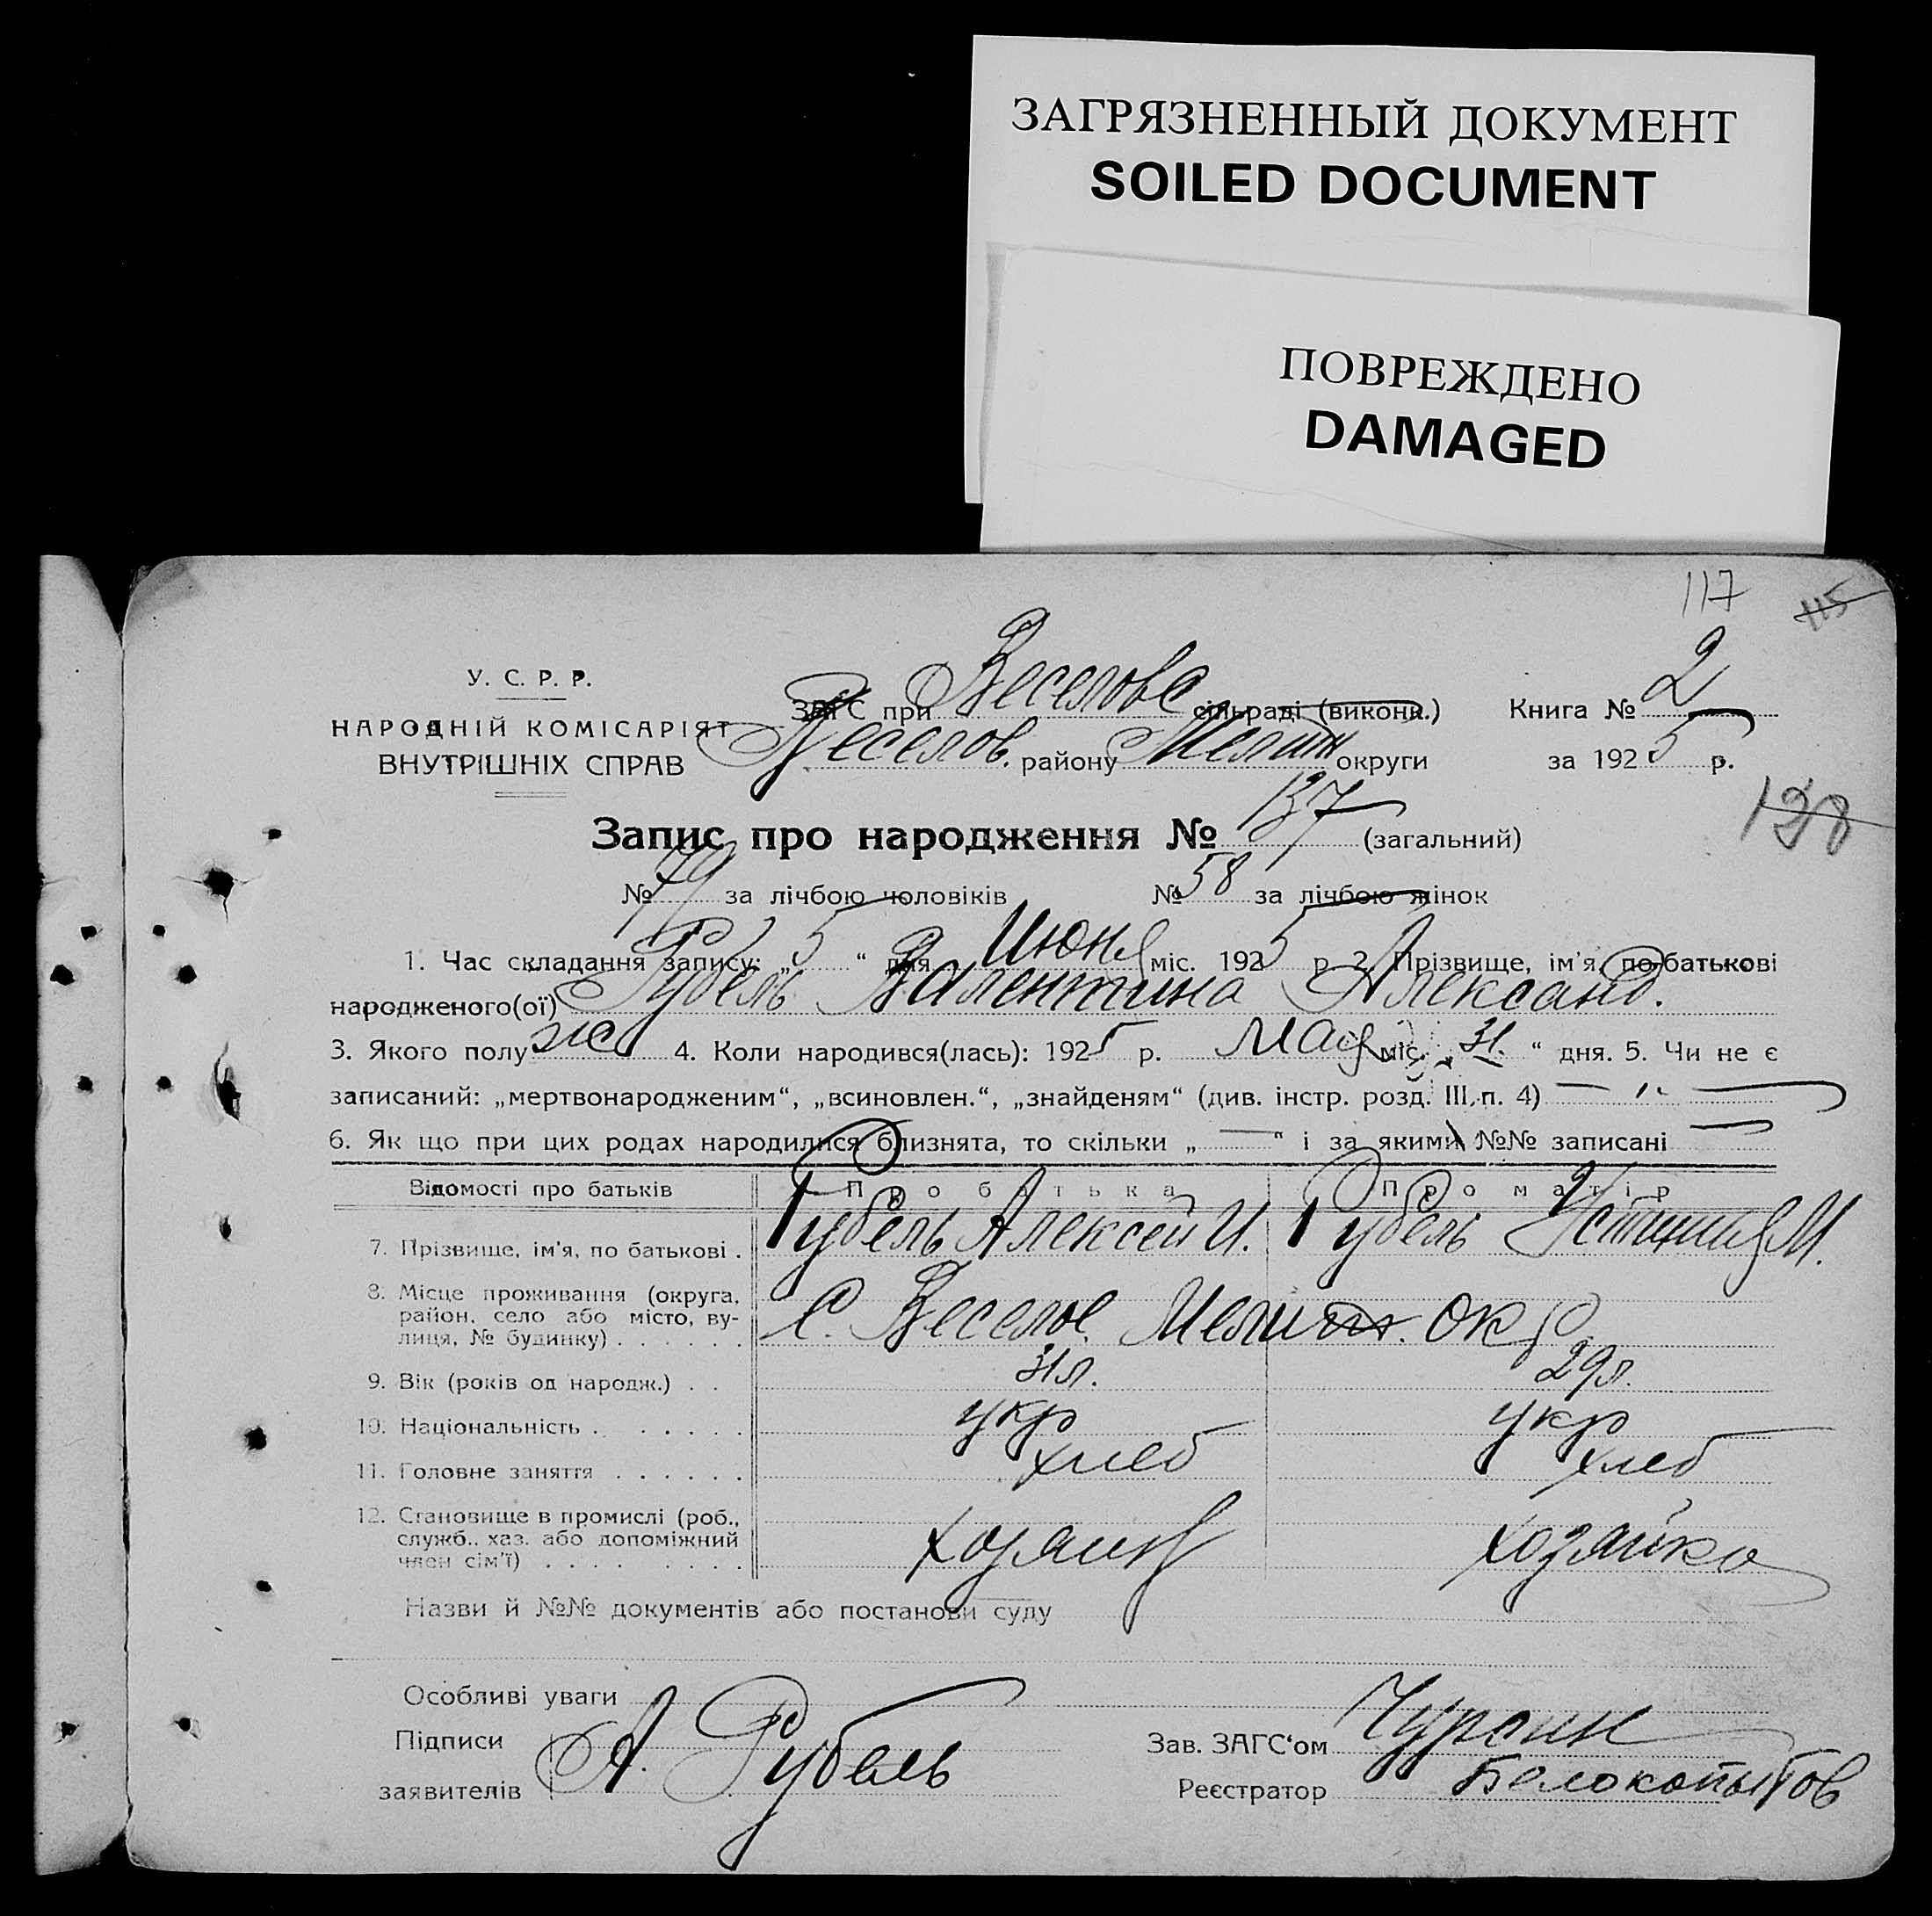 ЗАГРЯЗНЕННЫЙ ДОКУМЕНТ
SOILED DOCUMENT
ПОВРЕЖДЕНО
DAMAGED
117 115
У. С. Р. Р.
НАРОДНІЙ КОМІСАРІЯТ
ВНУТРІШНІХ СПРАВ
ЗАГС при Веселовс сільраді (викона.) Книга № 2
Веселов. району Мелит округи за 1925 р.
138
Запис про народження № 137 (загальний)
№ 79 за лічбою чоловіків № 58 за лічбою жінок
1. Час складання запису: „ 5 “ дня Июня міс. 1925 р 2. Прізвище, ім'я, по-батькові
народженого(ої) Рубель Валентина Александ.
3. Якого полу же 4. Коли народився(лась): 1925 р. мая міс. „ 31. “ дня. 5. Чи не є
записаний: „мертвонародженим“, „всиновлен.“, „знайденям“ (див. інстр. розд. III, п. 4) — „ —
6. Як що при цих родах народилися близнята, то скільки „ — “ і за якими №№ записані —
Відомості про батьків Про батька Про матір
7. Прізвище, ім'я, по батькові . Рубель Алексей И. Рубель Устиния М.
8. Місце проживання (округа,
район, село або місто, ву-
лиця, № будинку) . . . . . . С. Веселое Мелит. ок
9. Вік (років од народж.) . . 31 л. 29 л.
10. Національність . . . . . . укр укр
11. Головне заняття . . . . . . хлеб хлеб
12. Становище в промислі (роб.,
служб., хаз. або допоміжний
член сім'ї) . . . . . . . . хозяин хозяйка
Назви й №№ документів або постанови суду
Особливі уваги
Підписи
заявителів А. Рубель
Зав. ЗАГС‘ом Чурсин
Реєстратор Белокопытов